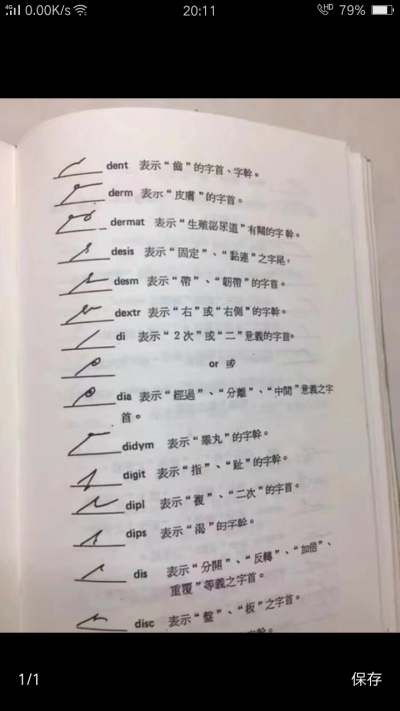 4G 0.00K/s 20:11 HD 79%
dent 表示“齒”的字首、字幹。
derm 表示“皮膚”的字首。
dermat 表示“生殖泌尿道”有關的字幹。
desis 表示“固定”、“黏連”之字尾。
desm 表示“帶”、“韌帶”的字首。
dextr 表示“右”或“右側”的字幹。
di 表示“2次”或“二”意義的字首。
or 或
dia 表示“經過”、“分離”、“中間”意義之字
首。
didym 表示“睪丸”的字幹。
digit 表示“指”、“趾”的字幹。
dipl 表示“複”、“二次”的字首。
dips 表示“渴”的字幹。
dis 表示“分開”、“反轉”、“加倍”、
重覆”等義之字首。
disc 表示“盤”、“板”之字首。
1/1 保存